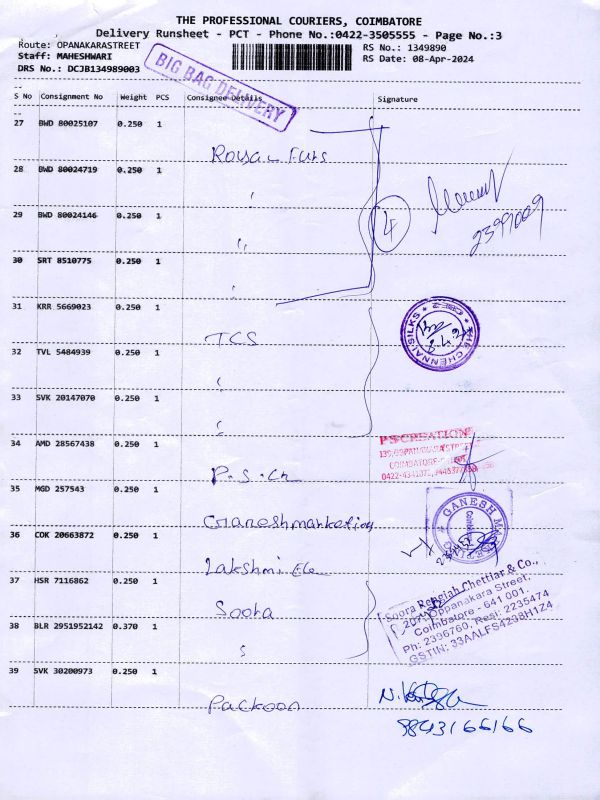 THE PROFESSIONAL COURIERS, COIMBATORE
Delivery Runsheet - PCT - Phone No.:0422-3505555 - Page No.:3
Route: OPANAKARASTREET
RS No.: 1349890
Staff: MAHESHWARI
RS Date: 08-Apr-2024
DRS No.: DCJB134989003
BIG BAG DELIVERY
S No Consignment No Weight PCS Consignee Details Signature
27 BWD 80025107 0.250 1
28 BWD 80024719 0.250 1
29 BWD 80024146 0.250 1
4
30 SRT 8510775 0.250 1
31 KRR 5669023 0.250 1
TCS
THE CHENNAI SILKS
CBE-2
32 TVL 5484939 0.250 1
33 SVK 20147070 0.250 1
34 AMD 28567438 0.250 1
P.S.Cr
P.S CREATION
COIMBATORE
35 MGD 257543 0.250 1
Ganeshmarketing
36 COK 20663872 0.250 1
Lakshmi Ele
37 HSR 7116862 0.250 1
Soora
Soora Rengiah Chettiar & Co.,
207, Oppanakara Street,
Coimbatore - 641 001.
Ph: 2396760, Resi: 2235474
GSTIN: 33AALFS4298H1Z4
38 BLR 2951952142 0.370 1
39 SVK 30200973 0.250 1
Packoon
9843166166